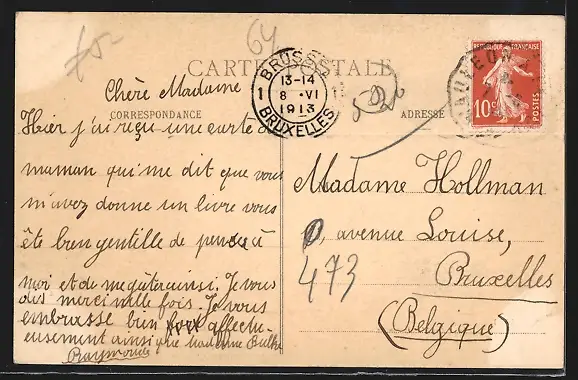 64
CARTE POSTALE
BRUSSEL
13-14
1 8 VI 1
1913
BRUXELLES
REPUBLIQUE FRANÇAISE
10c
POSTES
CORRESPONDANCE
ADRESSE
Chère Madame
Hier j'ai reçu une carte de
maman qui me dit que vous
m'avez donne un livre vous
ête bien gentille de pensé à
moi et de me gâter ainsi. Je vous
dis merci mille fois. Je vous
embrasse bien fort affectu-
eusement ainsi que Madame
Raymonde
Madame Hollman
avenue Louise,
473
Bruxelles
(Belgique)